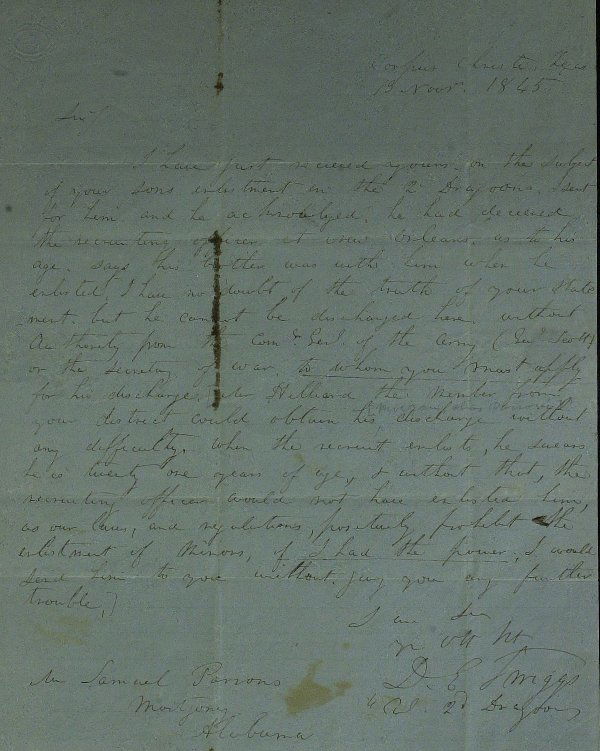 Corpus Christi, Texas
13 Novr. 1845
Sir
I have just received yours on the subject
of your sons enlistment in the 2d Dragoons, I sent
for him and he acknowledged, he had deceived
the recruiting officer at New Orleans, as to his
age. says his brother was with him when he
enlisted, I have no doubt of the truth of your state
ment, but he cannot be discharged here without
Authority from the Comdg Genl. of the Army (Genl Scott)
or the Secretary of War, to whom you must apply
for his discharge, Mr Hilliard the Member from
your district could obtain his discharge without
any difficulty. when the recruit enlists, he swears
he is twenty one years of age, & without that, the
recruiting officer would not have enlisted him,
as our laws, and regulations, positively prohibit the
enlistment of Minors, if I had the power, I would
send him to you without giving you any further
trouble,
I am Sir
yr Obt St
D. E. Twiggs
Col. 2d Dragoons
Mr Samuel Parsons
Montgomy
Alabama